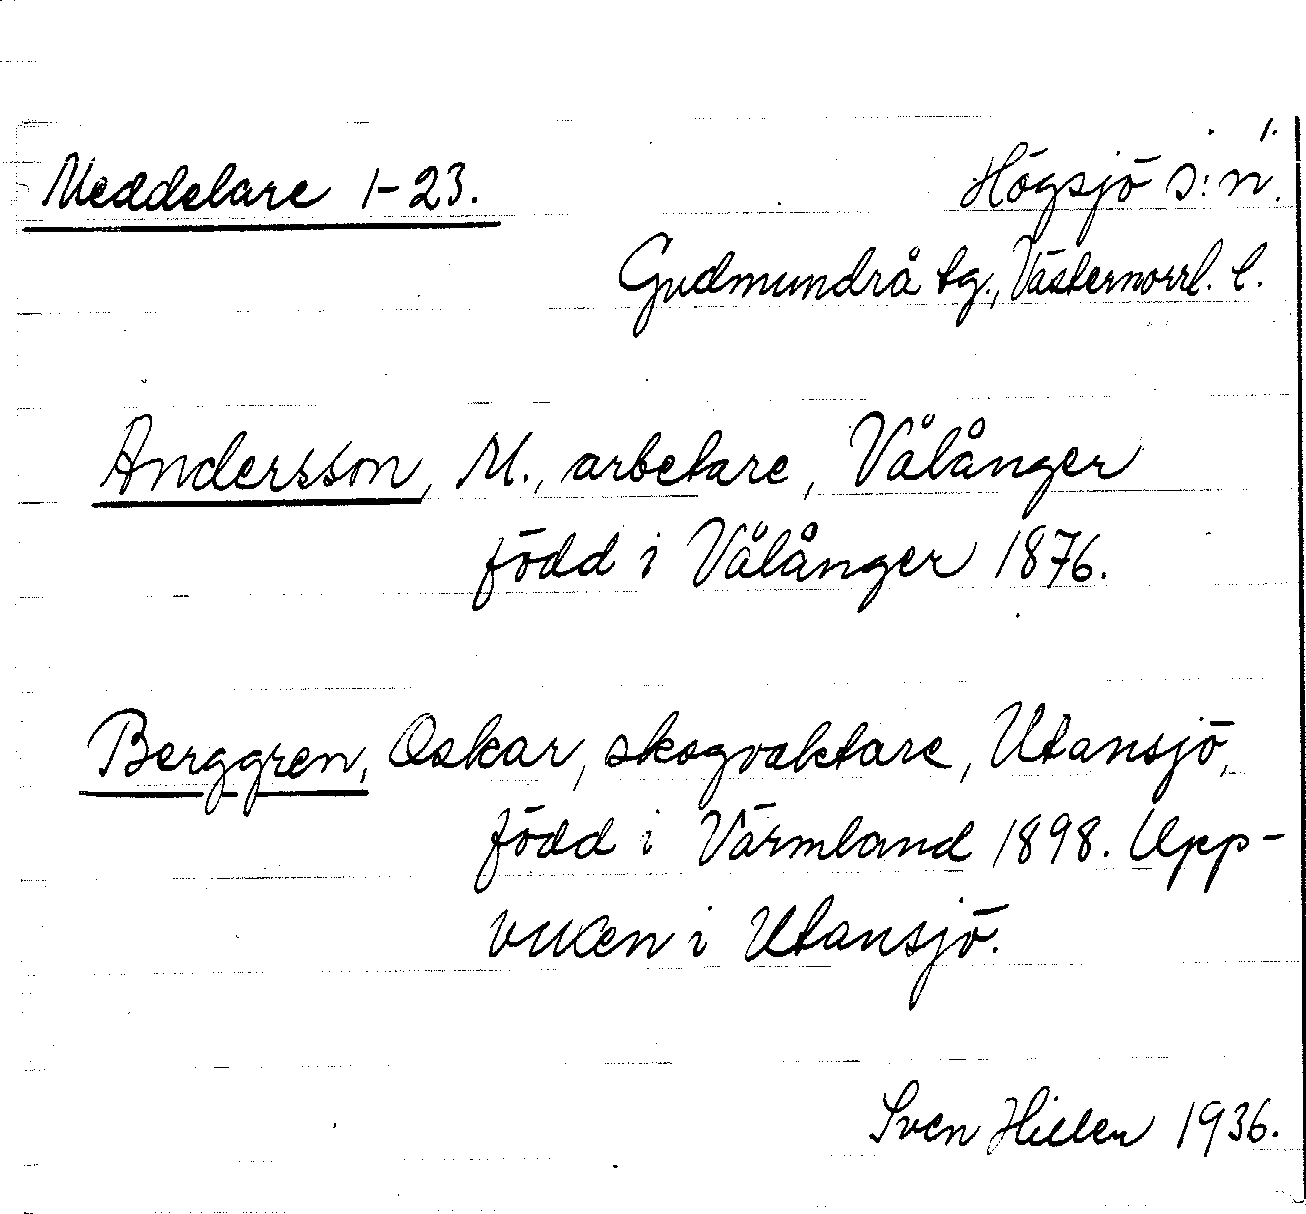 1.
Meddelare 1-23. Högsjö s:n.
Gudmundrå tg., Västernorrl. l.
Andersson, M., arbetare, Vålånger
född i Vålånger 1876.
Berggren, Oskar, skogvaktare, Utansjö,
född i Värmland 1898. Upp-
vuxen i Utansjö.
Sven Hiller 1936.